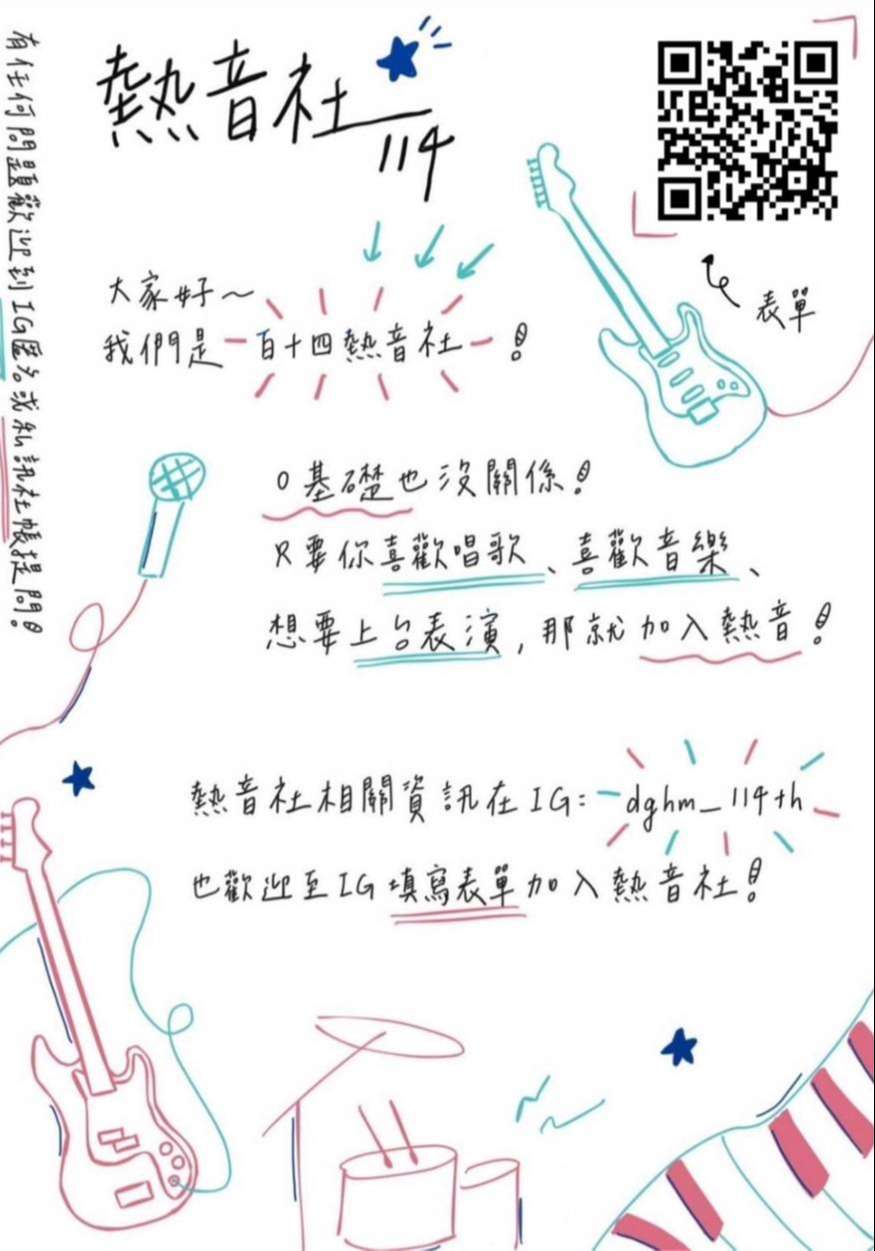 熱音社
114
表單
大家好～
我們是一百十四熱音社！
0基礎也沒關係！
只要你喜歡唱歌、喜歡音樂、
想要上台表演，那就加入熱音！
熱音社相關資訊在IG：dghm_114th
也歡迎至IG填寫表單加入熱音社！
有任何問題歡迎到IG匿名或私訊社帳提問！